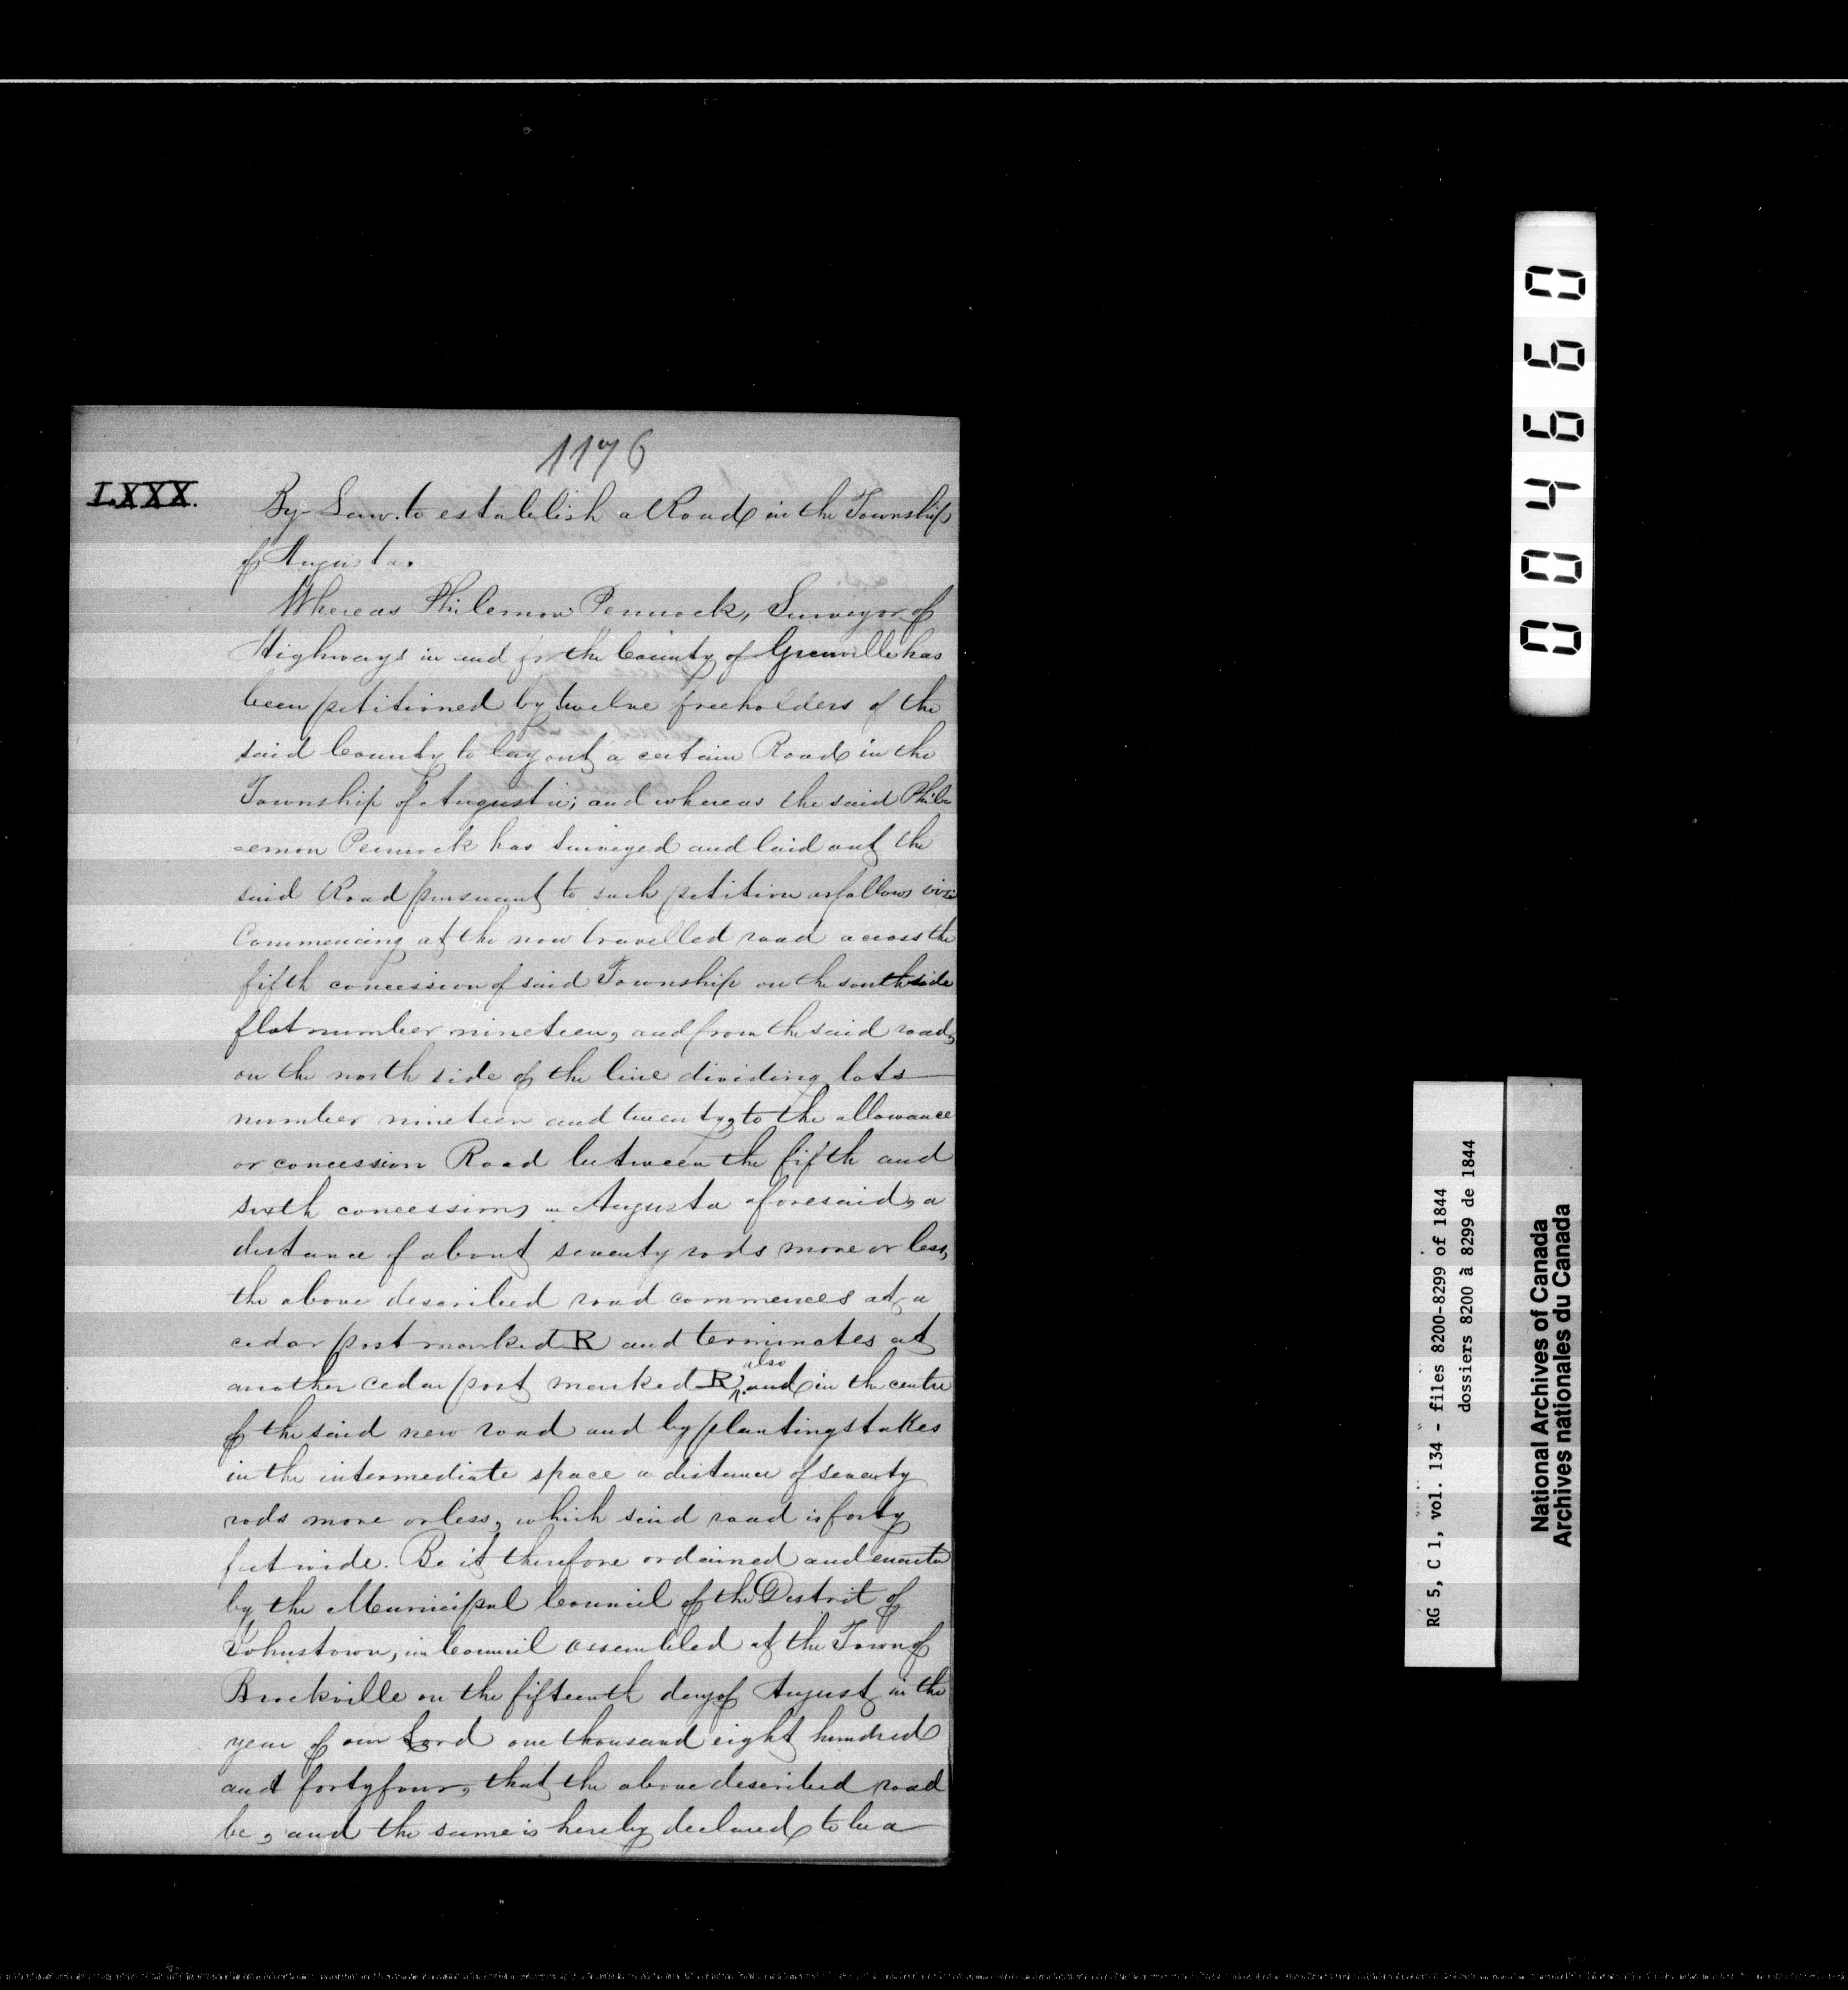 1176
LXXX.
By-Law. to establish a Road in the Township
of Augusta.
Whereas Philemon Pennock, Surveyor of
Highways in and for the County of Grenville has
been petitioned by twelve freeholders of the
said County to lay out a certain Road in the
Township of Augusta; and whereas the said Phile
=emon Pennock has surveyed and laid out the
said Road pursuant to such petition as follows viz:
Commencing at the now travelled road across the
fifth concession of said Township on the south side
of lot number nineteen, and from the said road,
on the north side of the line dividing lots
number nineteen and twenty, to the allowance
or concession Road between the fifth and
sixth concessions in Augusta aforesaid, a
distance of about seventy rods more or less,
the above described road commences at a
cedar post marked R and terminates at
another cedar post marked R, also and in the centre
of the said new road and by planting stakes
in the intermediate space a distance of seventy
rods more or less, which said road is forty
feet wide. Be it therefore ordained and enacted
by the Municipal Council of the District of
Johnstown, in Council assembled at the Town of
Brockville on the fifteenth day of August in the
year of our Lord one thousand eight hundred
and forty four, that the above described road
be, and the same is hereby declared to be a
004660
RG 5, C 1, vol. 134 - files 8200-8299 of 1844
dossiers 8200 à 8299 de 1844
National Archives of Canada
Archives nationales du Canada